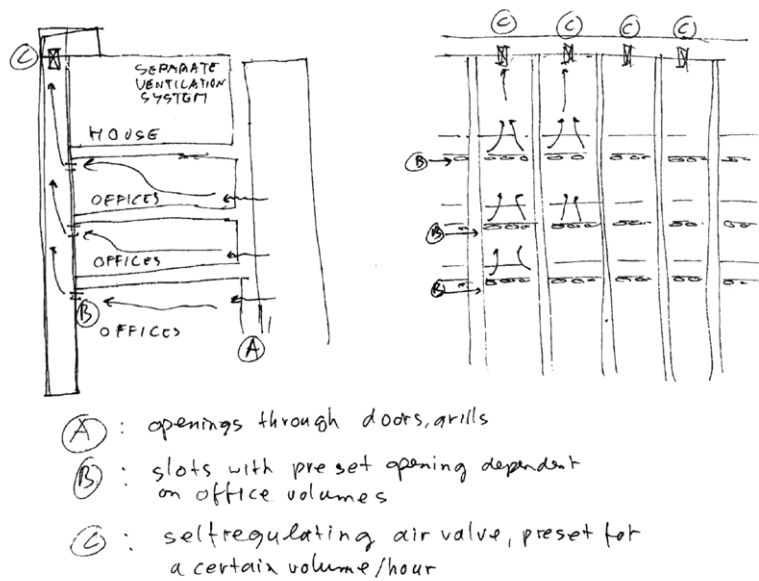 C
SEPARATE
VENTILATION
SYSTEM
HOUSE
OFFICES
OFFICES
B
OFFICES
A
C C C C
B
B
B
A : openings through doors, grills
B : slots with preset opening dependent
on office volumes
C : selfregulating air valve, preset for
a certain volume/hour